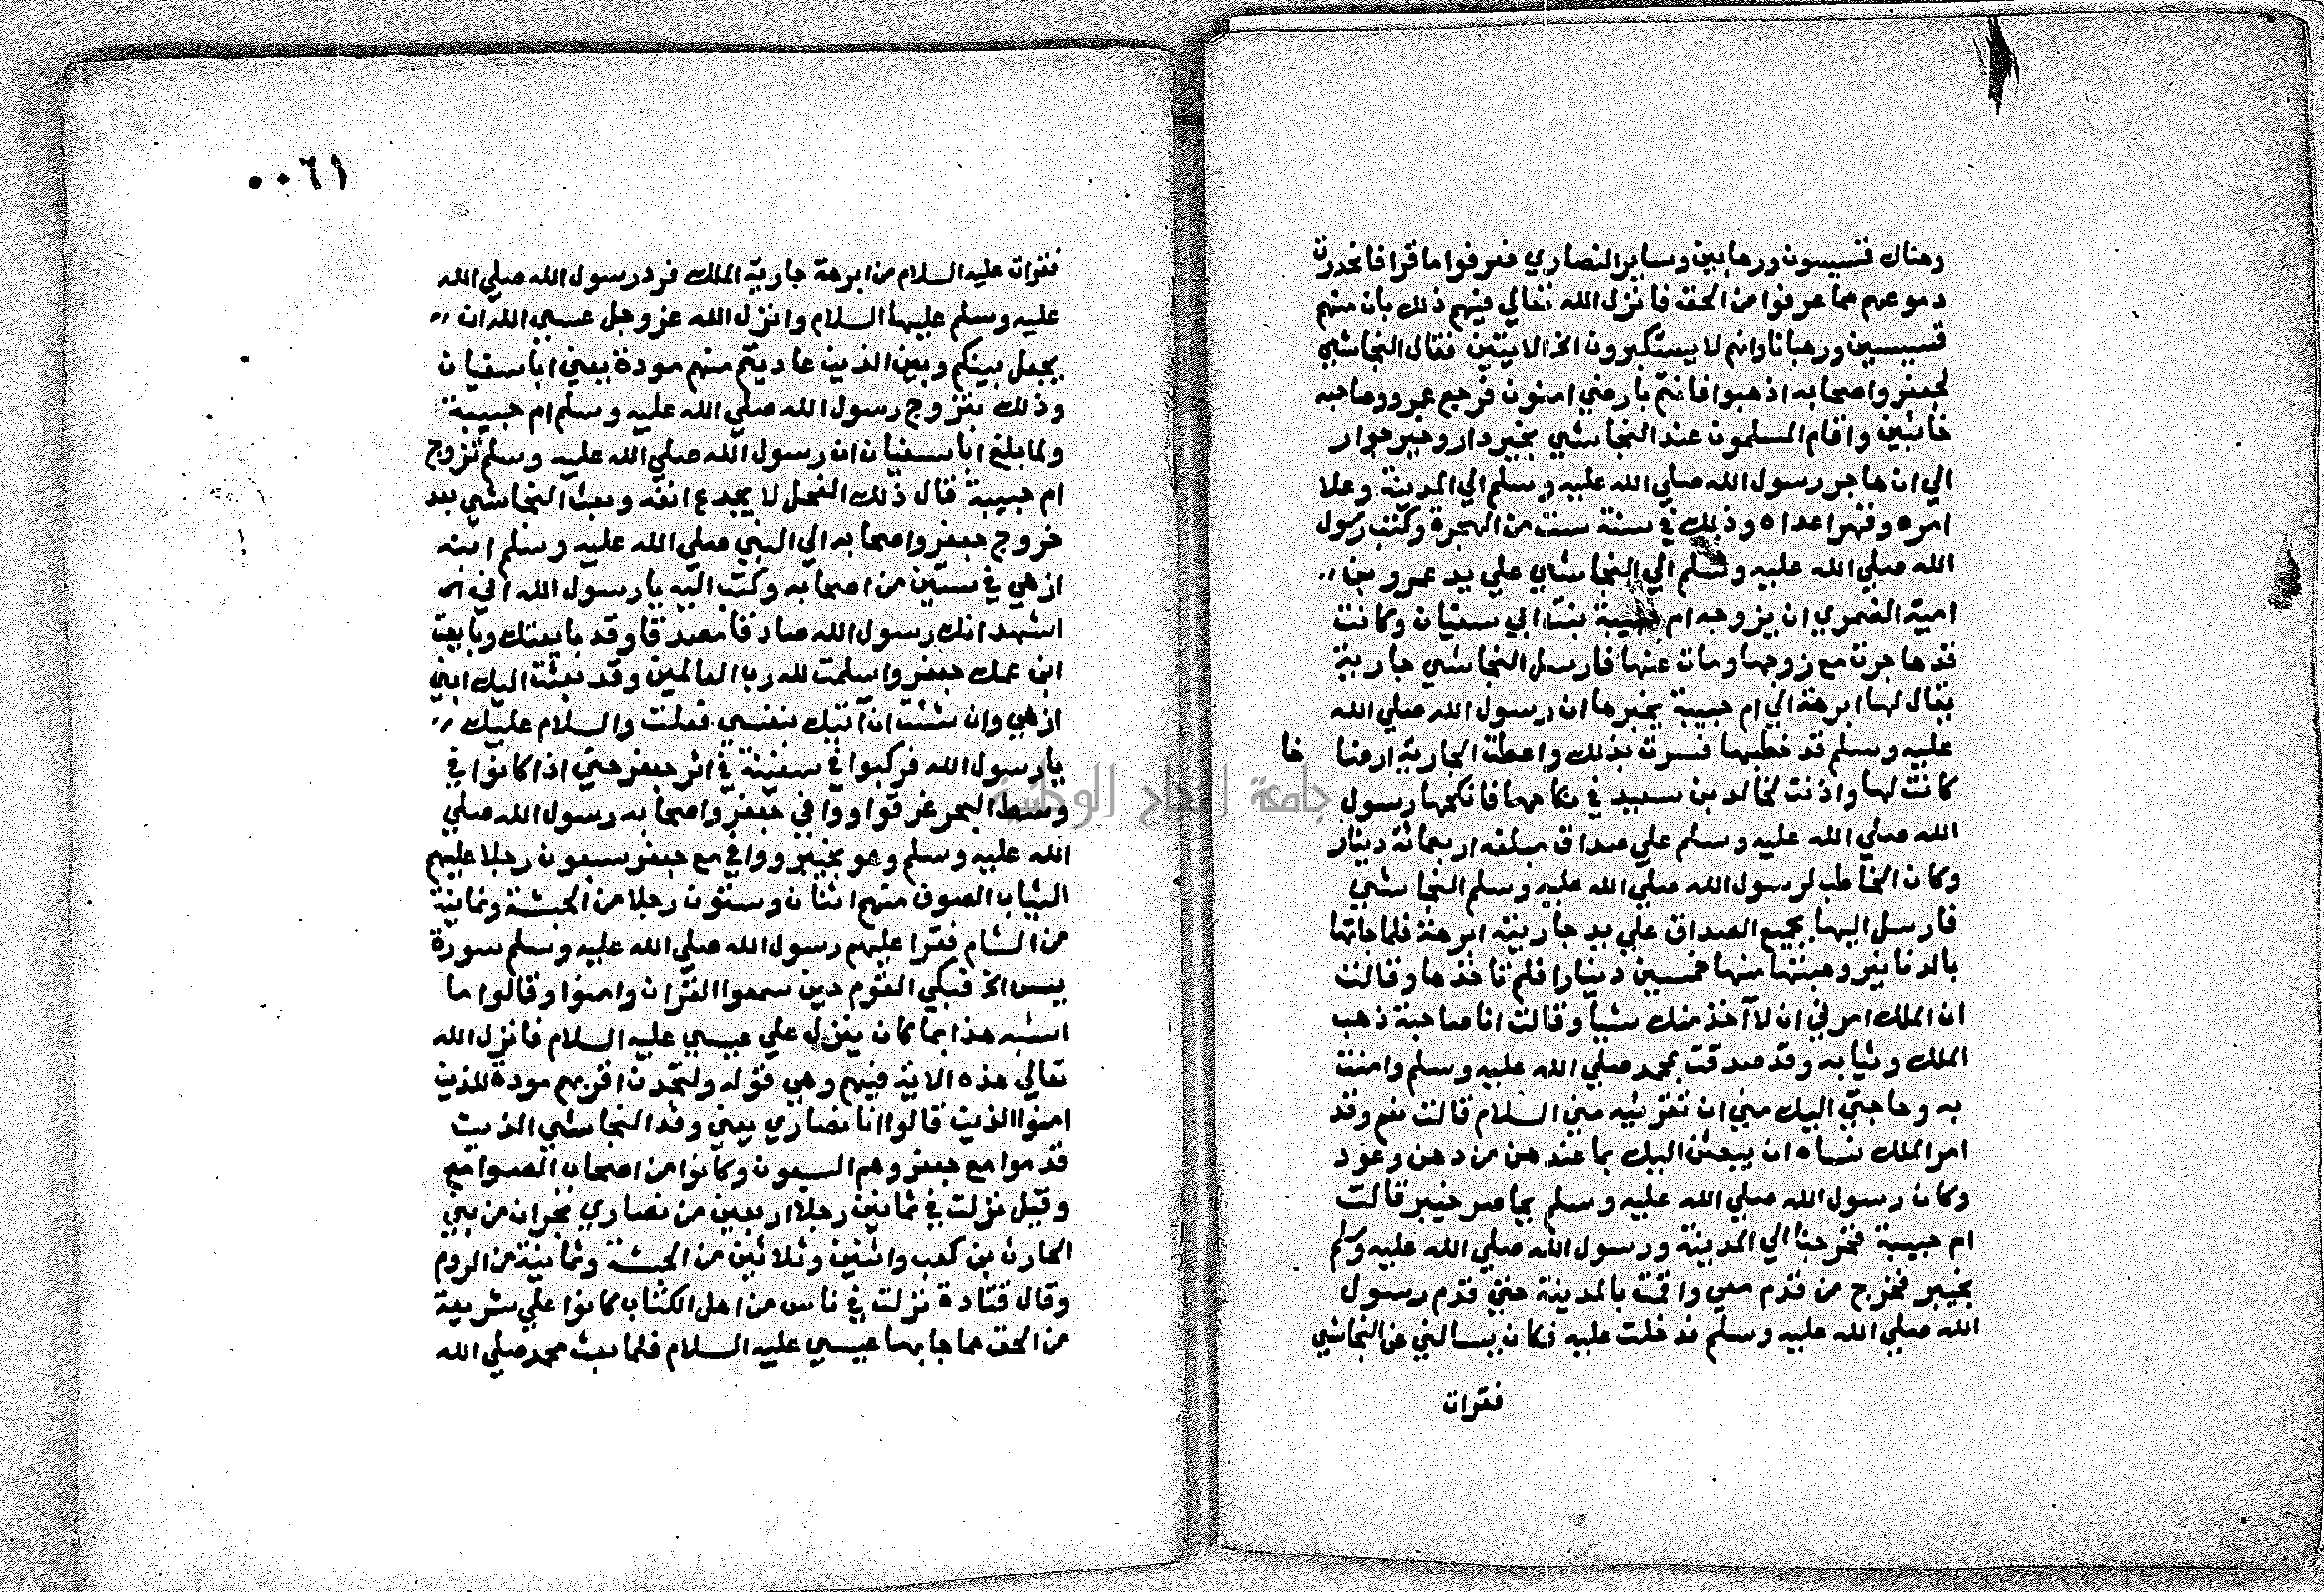 وهناك قسيسون ورهابين وساير النصاري فعرفوا ما قرا فانحدرت
دموعهم مما عرفوا من الحق فانزل الله تعالي فيهم ذلك بان منهم
قسيسين ورهبانا وانهم لا يستكبرون الخ الايتين فقال النجاشي
لجعفر واصحابه اذهبوا فانتم بارضي امنون فرجع عمرو وصاحبه
خائبين واقام المسلمون عند النجاشي بخير دار وخير جوار
الي ان هاجر رسول الله صلي الله عليه وسلم الي المدينة وعلا
امره وقهر اعداه وذلك في سنة ست من الهجرة وكتب رسول
الله صلي الله عليه وسلم الي النجاشي علي يد عمرو بن
امية الضمري ان يزوجه ام حبيبة بنت ابي سفيان وكانت
قد هاجرت مع زوجها ومات عنها فارسل النجاشي جارية
يقال لها ابرهة الي ام حبيبة يخبرها ان رسول الله صلي الله
عليه وسلم قد خطبها فسرت بذلك واعطت الجارية اوضا خا
كانت لها واذنت لخالد بن سعيد في نكاحها فانكحها رسول
الله صلي الله عليه وسلم علي صداق مبلغه اربعمائة دينار
وكان الخاطب لرسول الله صلي الله عليه وسلم النجاشي
فارسل اليها بجميع الصداق علي يد جاريته ابرهة فلما جاتها
بالدنانير وهبتها منها خمسين دينارا فلم تاخذها وقالت
ان الملك امرني ان لا آخذ منك شيأ وقالت انا صاحبة ذهب
الملك وثيابه وقد صدقت بمحمد صلي الله عليه وسلم وامنت
به وحاجتي اليك مني ان تقرئيه مني السلام قالت نعم وقد
امر الملك نساه ان يبعثن اليك بما عندهن من دهن وعود
وكان رسول الله صلي الله عليه وسلم يحاصر خيبر قالت
ام حبيبة فخرجنا الي المدينة ورسول الله صلي الله عليه وسلم
بخيبر فخرج من قدم معي واقمت بالمدينة حتي قدم رسول
الله صلي الله عليه وسلم فدخلت عليه فكان يسالني عن النجاشي
فقرات
٠٠٦١
فقرات عليه السلام من ابرهة جارية الملك فرد رسول الله صلي الله
عليه وسلم عليها السلام وانزل الله عز وجل عسي الله ان
يجعل بينكم وبين الذين عاديتم منهم مودة يعني ابا سفيان
وذلك بتزوج رسول الله صلي الله عليه وسلم ام حبيبة
ولما بلغ ابا سفيان ان رسول الله صلي الله عليه وسلم تزوج
ام حبيبة قال ذلك الفحل لا يجدع انفه وبعث النجاشي بعد
خروج جعفر واصحابه الي النبي صلي الله عليه وسلم ابنه
ازهي في ستين من اصحابه وكتب اليه يا رسول الله اني
اشهد انك رسول الله صادقا مصدقا وقد بايعتك وبايعت
ابن عمك جعفر واسلمت لله رب العالمين وقد بعثت اليك ابني
ازهي وان شئت ان آتيك بنفسي فعلت والسلام عليك
يا رسول الله فركبوا في سفينة في اثر جعفر حتي اذا كانوا في
وسط البحر غرقوا ووافي جعفر واصحابه رسول الله صلي
الله عليه وسلم وهو بخيبر ووافي مع جعفر سبعون رجلا عليهم
الثياب الصوف منهم اثنان وستون رجلا من الحبشة وثمانية
من الشام فقرا عليهم رسول الله صلي الله عليه وسلم سورة
يس الخ فبكي القوم حين سمعوا القران وامنوا وقالوا ما
اشبه هذا بما كان ينزل علي عيسي عليه السلام فانزل الله
تعالي هذه الاية فيهم وهي قوله ولتجدن اقربهم مودة للذين
امنوا الذين قالوا انا نصاري يعني وفد النجاشي الذين
قدموا مع جعفر وهم السبعون وكانوا من اصحاب الصوامع
وقيل نزلت في ثمانين رجلا اربعين من نصاري نجران من بني
الحارث بن كعب واثنين وثلاثين من الحبشة وثمانية من الروم
وقال قتادة نزلت في ناس من اهل الكتاب كانوا علي شريعة
من الحق مما جا بها عيسي عليه السلام فلما بعث محمد صلي الله
جامعة النجاح الوطنية